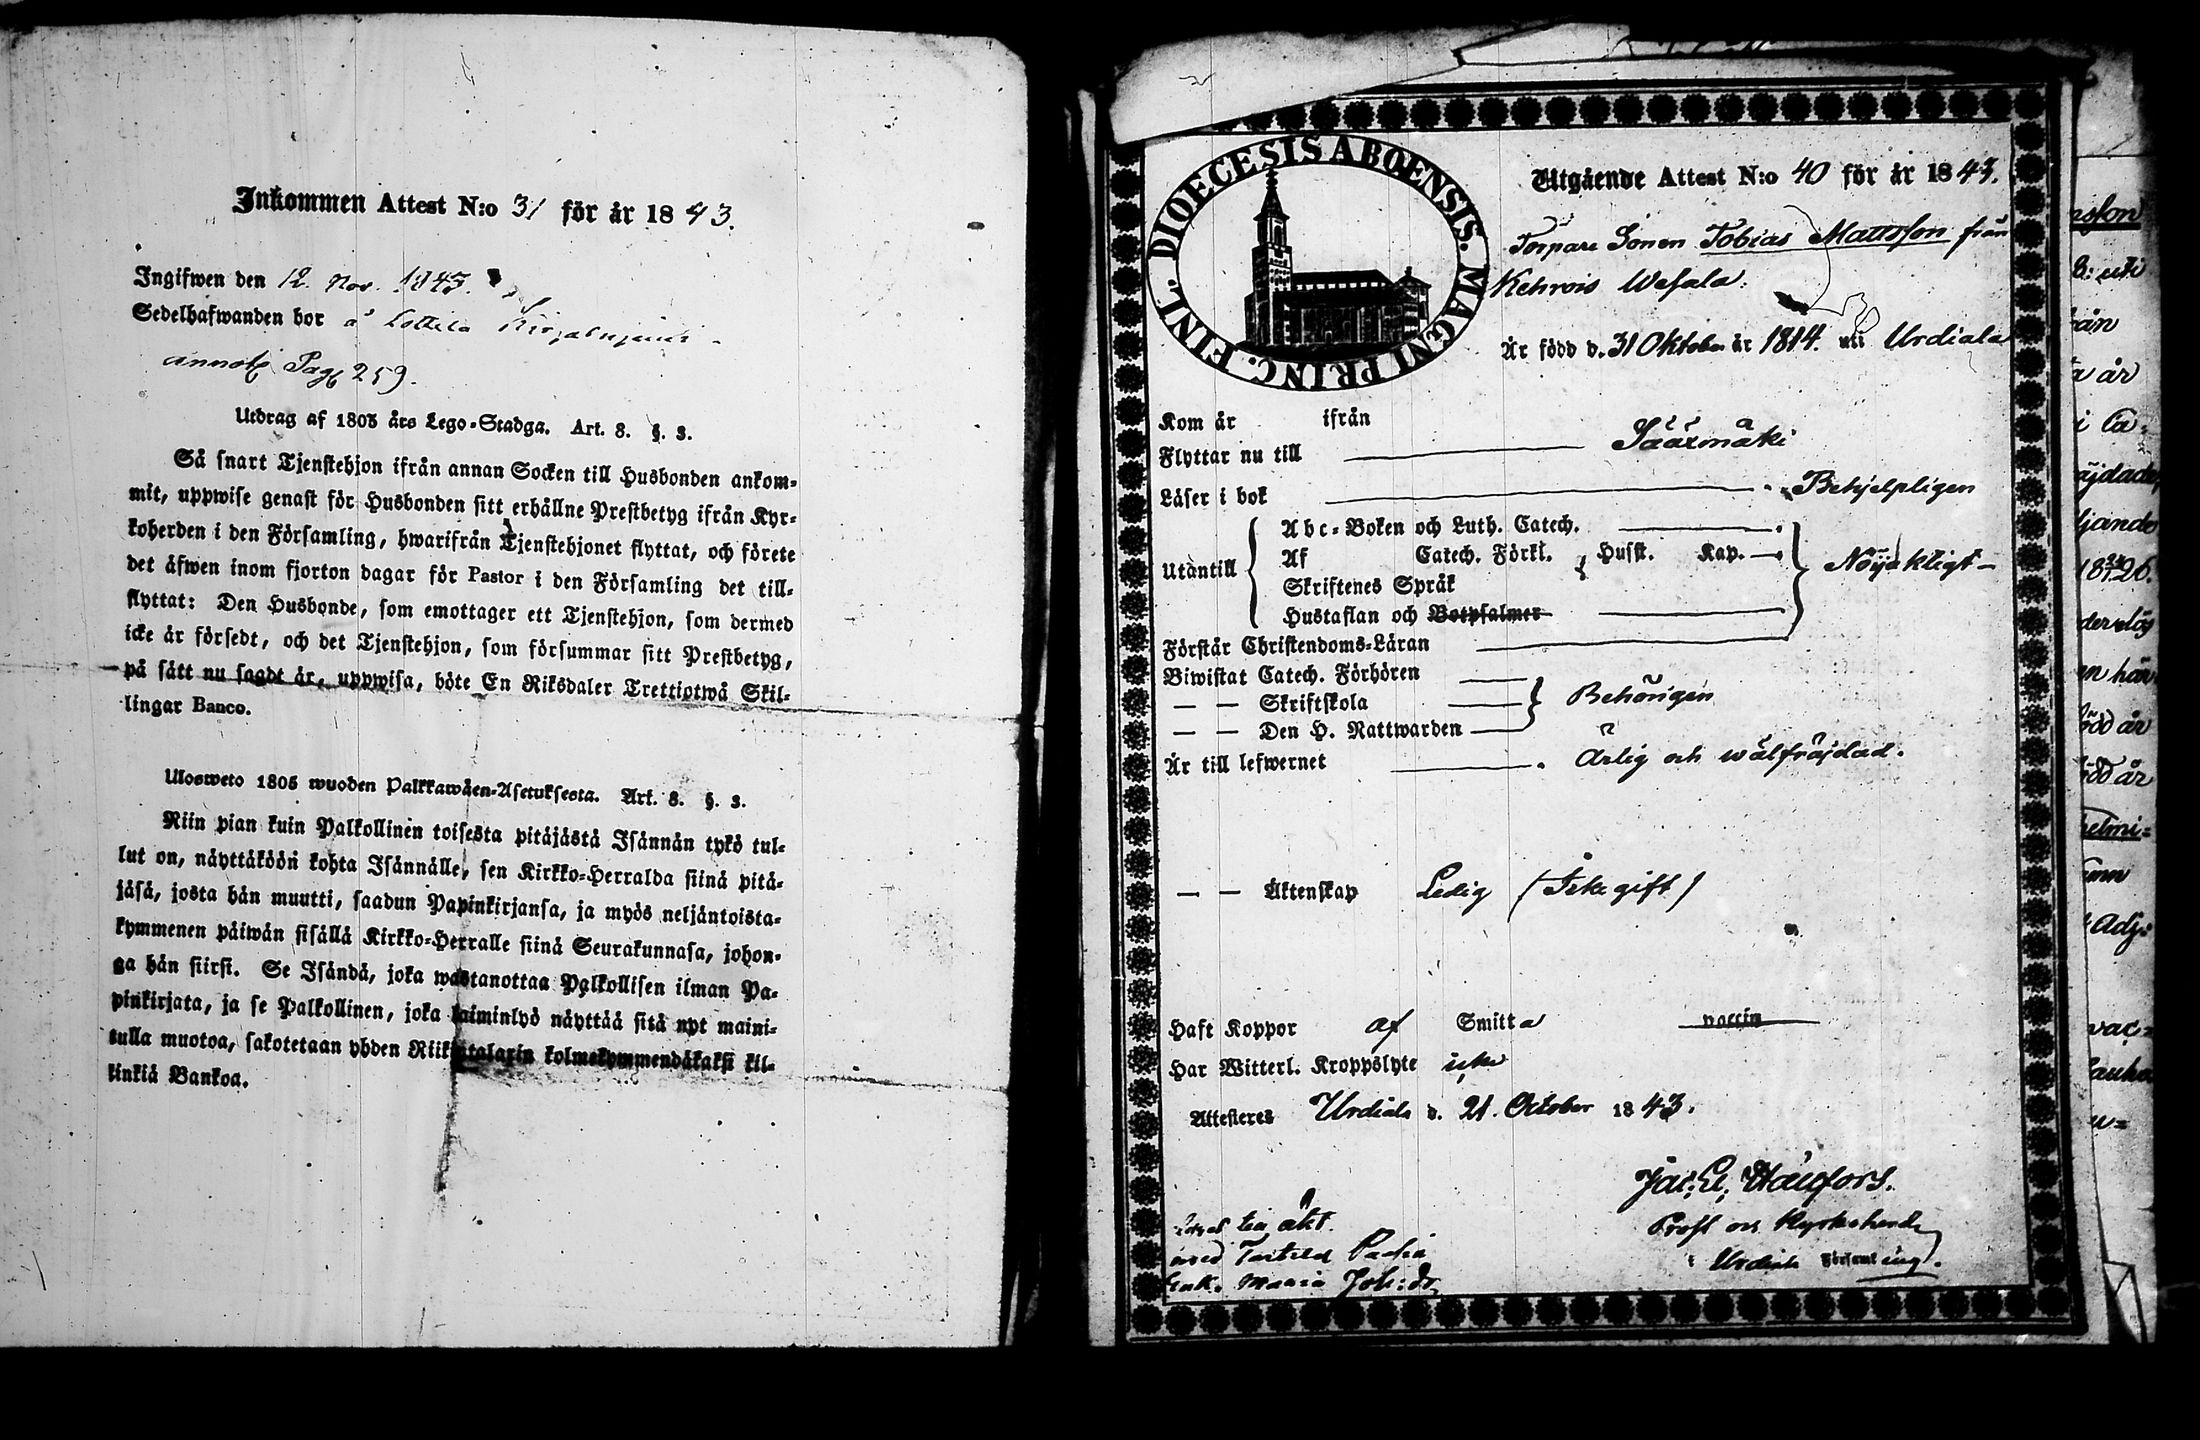 Inkommen Attest N:o 31 för år 1843.
Ingifwen den 12. Nov. 1843.
Sedelhafwanden bor å Lottila
annot. Pag. 259.
Utdrag af 1805 års Lego-Stadga. Art. 8. §. 3.
Så snart Tjenstehjon ifrån annan Socken till Husbonden ankom-
mit, uppwise genast för Husbonden sitt erhållne Prestbetyg ifrån Kyr-
koherden i den Församling, hwarifrån Tjenstehjonet flyttat, och förete
det äfwen inom fjorton dagar för Pastor i den Församling det till-
flyttat: Den Husbonde, som emottager ett Tjenstehjon, som dermed
icke är försedt, och det Tjenstehjon, som försummar sitt Prestbetyg,
på sätt nu sagdt är, uppwisa, böte En Riksdaler Trettiotwå Skil-
lingar Banco.
Ulosweto 1805 wuoden Palkkawäen-Asetuksesta. Art. 8. §. 3.
Niin pian kuin Palkollinen toisesta pitäjästä Isännän tykö tul-
lut on, näyttäköön kohta Isännälle, sen Kirkko-Herralda siinä pitä-
jäsä, josta hän muutti, saadun Papinkirjansa, ja myös neljäntoista-
kymmenen päiwän sisällä Kirkko-Herralle siinä Seurakunnasa, johon-
ga hän siirsi. Se Isändä, joka wastanottaa Palkollisen ilman Pa-
pinkirjata, ja se Palkollinen, joka laiminlyö näyttää sitä nyt maini-
tulla muotoa, sakotetaan yhden Riikintalarin kolmekymmendäkaksi kil-
linkiä Bankoa.
DIOECESIS ABOENSIS. MAGNI PRINC. FINL.
Utgående Attest N:o 40 för år 1843.
Torpare Sonen Tobias Mattsson från
Kehrois Wesala.
Är född d. 31 Oktober år 1814. uti Urdiala
Kom år ifrån
Flyttar nu till Sääxmäki
Läser i bok Behjelpligen
Utantill
Abc-Boken och Luth. Catech.
Af Catech. Förkl. Husst. Kap. Nöjaktigt
Skriftenes Språk
Hustaflan och Botpsalmer
Förstår Christendoms-Läran
Biwistat Catech. Förhören
— — Skriftskola Behörigen
— — Den H. Nattwarden
Är till lefwernet Ärlig och wälfräjdad.
— — Äktenskap Ledig (Icke gift)
Haft Koppor af Smitta vaccin
Har Witterl. Kroppslyte icke
Attesteres Urdiala d. 21. October 1843.
Prost och Kyrkoherde
i Urdiala Församling.
till äkt.
med
Maria Joh:dr